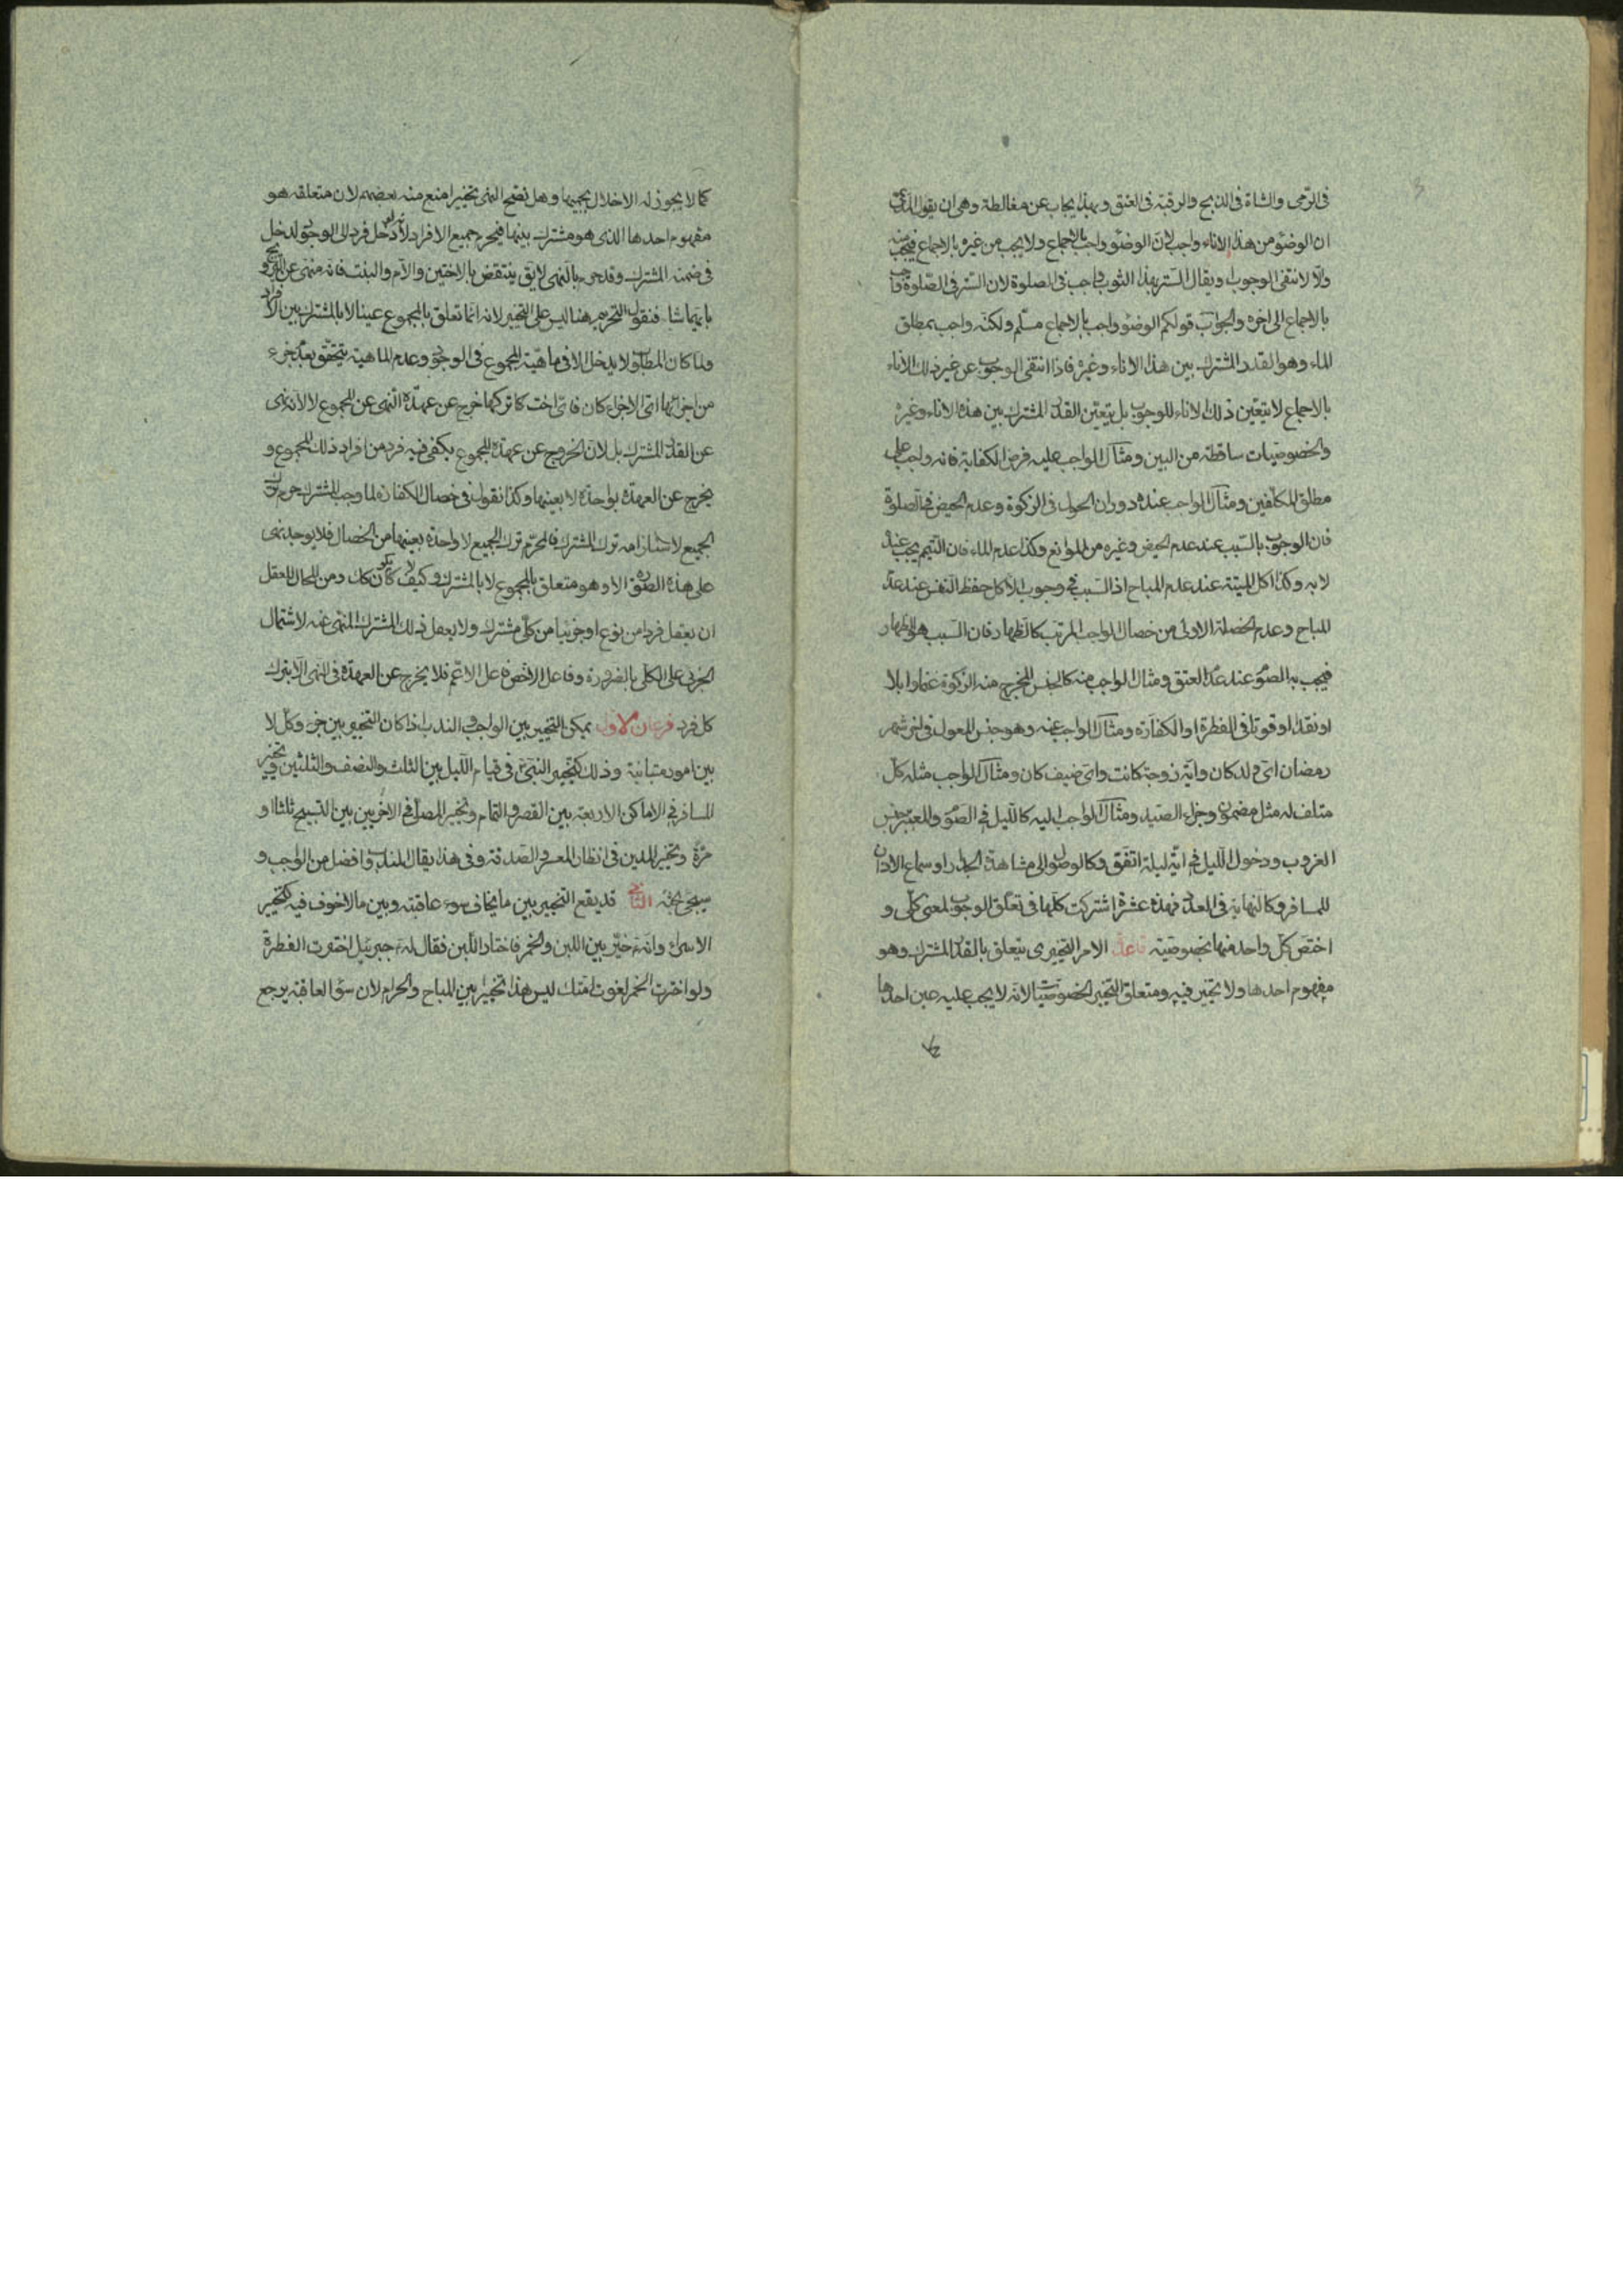 فى الرّمى والشاة فى الذبح والرقبة فى العتق وبهذا يجاب عن مغالطة وهى ان يقول المدّعى
ان الوضوء من هذا الاناء واجب لانّ الوضوء واجب بالاجماع ولا يجب من غيره بالاجماع فيجب منه
والّا لانتفى الوجوب ويقال الستر بهذا الثوب واجب فى الصلوة لان الستر فى الصّلوة واجب
بالاجماع الى اخره والجواب قولكم الوضوء واجب بالاجماع مسلّم ولكنّه واجب بمطلق
الماء وهو القدر المشترك بين هذا الاناء وغيره فاذا انتفى الوجوب عن غير ذلك الاناء
بالاجماع لا يتعيّن ذلك الاناء للوجوب بل يتعيّن القدر المشترك بين هذه الاناء وغيره
والخصوصيات ساقطة من البين ومثال الواجب عليه فرض الكفاية فانه واجب على
مطلق المكلّفين ومثال الواجب عنده دوران الحول فى الزكوة وعدم الحيض فى الصلوة
فان الوجوب بالسّبب عند عدم الحيض وغيره من الموانع وكذا عدم الماء فان التّيمم يجب عنده
لا به وكذا اكل الميتة عند عدم المباح اذ السّبب فى وجوب الاكل حفظ النفس عند عدم
المباح وعدم الخصلة الاولى من خصال الواجب المرتب كالظهار فان السّبب هو الظهار
فيجب به الصوم عند عدم العتق ومثال الواجب منه كالجنس المخرج منه الزكوة غنما وابلا
او نقدا او قوتا فى الفطرة او الكفارة ومثال الواجب عنه وهو جنس المعول فى اخر شهر
رمضان اىّ ولد كان وايّة زوجة كانت واىّ ضيف كان ومثال الواجب مثله كل
متلف له مثل مضمون وجزاء الصّيد ومثال الواجب اليه كالليل فى الصّوم والمعتبر جنس
الغروب ودخول الليل فى ايّة ليلة اتّفق وكالوصول الى مشاهدة الجدار او سماع الاذان
للمسافر وكالنهاية فى العدد فهذه عشرة اشتركت كلها فى تعلّق الوجوب لمعنى كلّى و
اختصّ كلّ واحد منها بخصوصيّة قاعدة الامر التخييرى يتعلق بالقدر المشترك وهو
مفهوم احدها ولا تخيير فيه ومتعلق التخيير الخصوصيّات لانّه لا يجب عليه عين احدها
كما
كما لا يجوز له الاخلال بجميعها وهل يصحّ النهى تخييرا منع منه بعضهم لان متعلقه هو
مفهوم احدها الذى هو مشترك بينها فيحرم جميع الافراد لانّه لو دخل فرد الى الوجود لدخل
فى ضمنه المشترك وقد حرم بالنهى لا يق ينتقض بالاختين والامّ والبنت فانه منهى عن التزويج
بايتهما شاء فنقول التحريم هنا ليس على التخيير لانه انما تعلق بالمجموع عينا لا بالمشترك بين الافراد
ولما كان المطلوب لا يدخل الا فى ماهيّة المجموع فى الوجود وعدم الماهية يتحقق بعدم جزء
من اجزائها اىّ الاجزاء كان فاىّ اخت كان تركها خرج عن عهدة النهى عن المجموع لا لانّه نهى
عن القدر المشترك بل لان الخروج عن عهدة المجموع يكفى فيه فرد من افراد ذلك المجموع و
يخرج عن العهدة بواحدة لا بعينها وكذا نقول فى خصال الكفارة لما وجب المشترك حرم ترك
الجميع لاستلزامه ترك المشترك فالمحرّم ترك الجميع لا واحدة بعينها من الخصال فلا يوجد نهى
على هذه الصورة الا وهو متعلق بالمجموع لا بالمشترك وكيف لا يكون كك ومن المحال للعقل
ان يفعل فردا من نوع او جزئيا من كلّى مشترك ولا يفعل ذلك المشترك المنهى عنه لاشتمال
الجزئى على الكلّى بالضرورة وفاعل الاخصّ فاعل الاعمّ فلا يخرج عن العهدة فى النهى الّا بترك
كل فرد فرعان الاول يمكن التخيير بين الواجب والندب اذا كان التخيير بين جزء وكلّ لا
بين امور متباينة وذلك كتخيير النبىّ ص فى قيام الليل بين الثلث والنصف والثلثين وتخيير
المسافر فى الاماكن الاربعة بين القصر والتمام وتخيير المصلّى فى الاخريين بين التسبيح ثلاثا او
مرّة وتخيير المدين فى انظار المعسر والصدقة وفى هذا يقال المندوب افضل من الواجب و
سيجئ بحثه الثانى قد يقع التخيير بين ما يخاف سوء عاقبته وبين ما لا خوف فيه كتخيير
الاسراء وانه ص خيّر بين اللبن والخمر فاختار اللّبن فقال له جبرئيل اخترت الفطرة
ولو اخترت الخمر لغوت امّتك ليس هذا تخييرا بين المباح والحرام لان سوء العاقبة يرجع